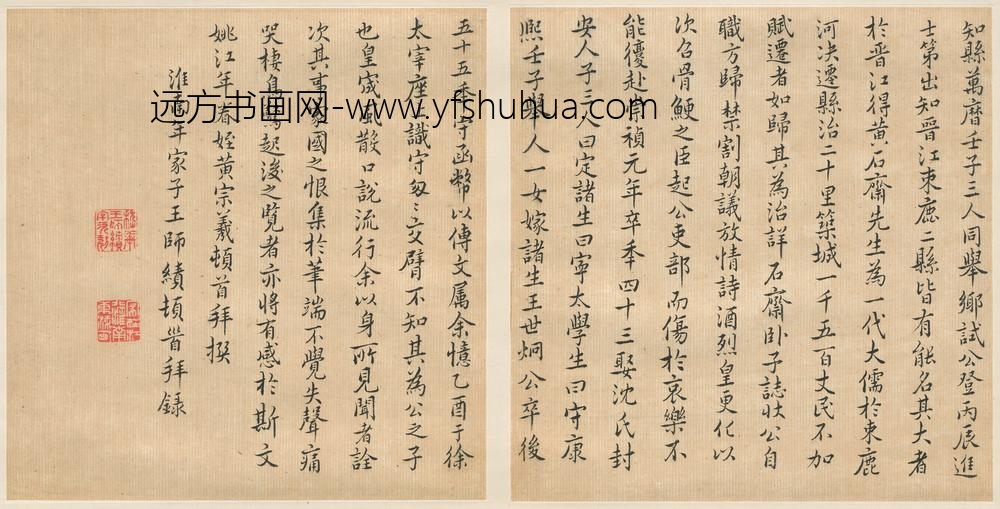 知縣萬曆壬子三人同舉鄉試公登丙辰進
士第出知晉江束鹿二縣皆有能名其大者
於晉江得黃石齋先生為一代大儒於束鹿
河决遷縣治二十里築城一千五百丈民不加
賦遷者如歸其為治詳石齋卧子誌狀公自
職方歸禁割朝議放情詩酒烈皇更化以
次召骨鯁之臣起公吏部而傷於哀樂不
能𢖍赴崇禎元年卒年四十三娶沈氏封
安人子三人曰定諸生曰寧太學生曰守康
熙壬子舉人一女嫁諸生王世炯公卒後
五十五年守函幣以傳文属余憶乙酉于徐
太宰座上識守匆〻交臂不知其為公之子
也皇宬風散口說流行余以身所見聞者詮
次其事家國之恨集於筆端不覺失聲痛
哭棲鳥驚起後之覽者亦將有感於斯文
姚江年眷姪黃宗羲頓首拜撰
淮南年家子王師績頓首拜錄
远方书画网-www.yfshuhua.com